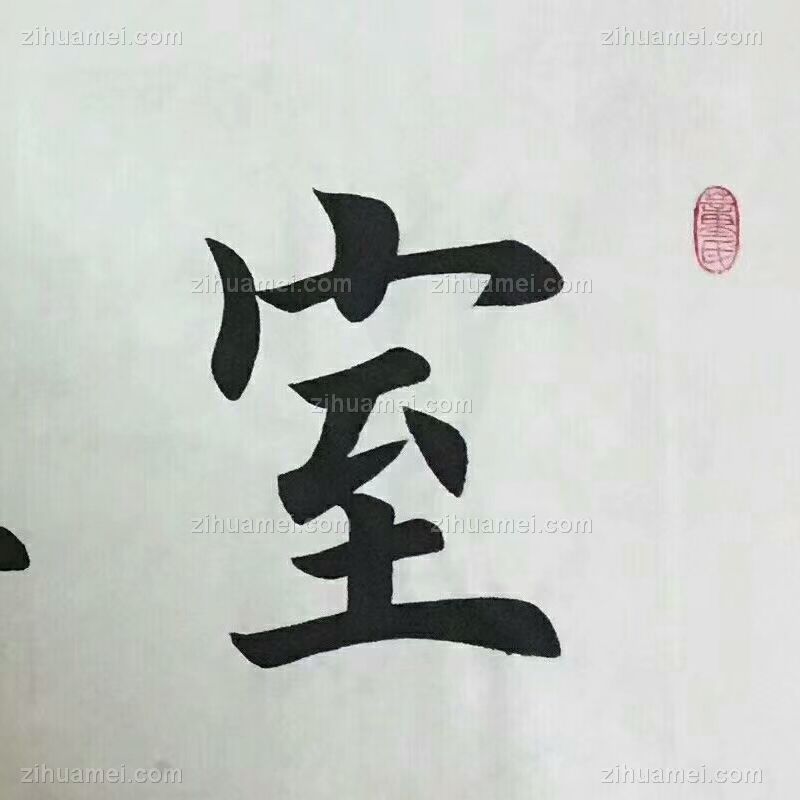 zihuamei.com zihuamei.com
室
zihuamei.com zihuamei.com
zihuamei.com
zihuamei.com zihuamei.com
zihuamei.com zihuamei.com